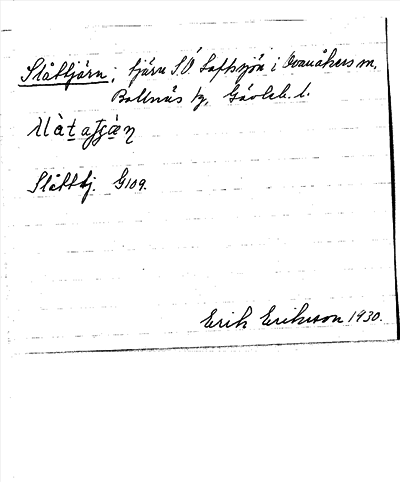 Slåttjärn; tjärn S.Ö. Loftsjön i Ovanåkers m,
Bollnäs tg, Gävleb. l.
Slåtttj. G109.
Erik Eriksson 1930.